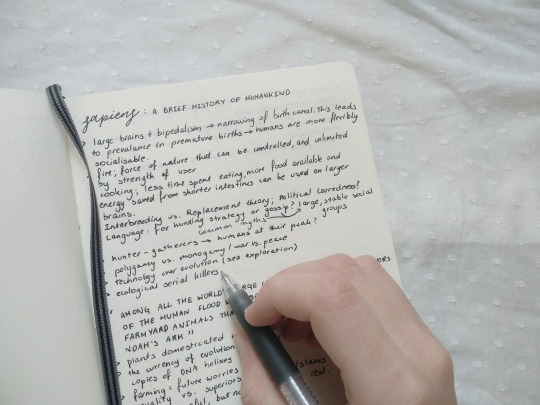 sapiens: A BRIEF HISTORY OF HUMANKIND
large brains + bipedalism → narrowing of birth canal. This leads
to prevalence in premature births → humans are more flexibly
socialisable.
fire; force of nature that can be controlled, and unlimited
by strength of user
cooking; less time spent eating, more food available and
energy saved from shorter intestines can be used on larger
brains.
Interbreeding vs. Replacement theory; Political correctness?
Language: For hunting strategy or gossip? large, stable social
common myths groups
hunter-gatherers → humans at their peak?
polygamy vs. monogamy / war vs. peace
technology over evolution (sea exploration)
ecological serial killers
"AMONG ALL THE WORLD'S
OF THE HUMAN FLOOD
FARMYARD ANIMALS
NOAH'S ARK"
plants domesticated
the currency of evolution
copies of DNA helixes
farming = future worries
vs. superiors real.
but